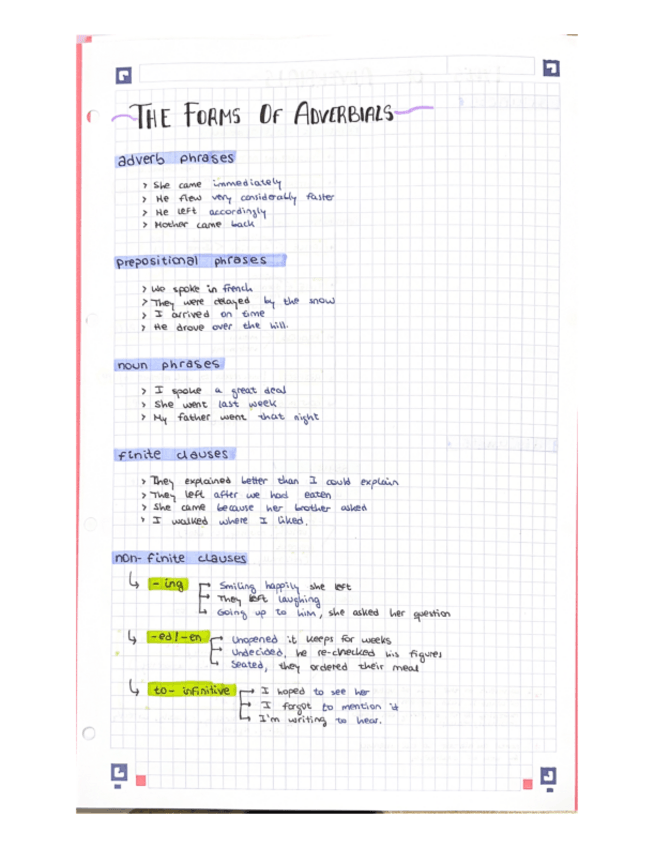 THE FORMS OF ADVERBIALS
adverb phrases
> She came immediately
> He flew very considerably faster
> He left accordingly
> Mother came back
prepositional phrases
> We spoke in french
> They were delayed by the snow
> I arrived on time
> He drove over the hill.
noun phrases
> I spoke a great deal
> She went last week
> My father went that night
finite clauses
> They explained better than I could explain
> They left after we had eaten
> She came because her brother asked
> I walked where I liked.
non-finite clauses
-ing
Smiling happily she left
They left laughing
Going up to him, she asked her question
-ed/-en
Unopened it keeps for weeks
Undecided, he re-checked his figures
Seated, they ordered their meal
to-infinitive
I hoped to see her
I forgot to mention it
I'm writing to hear.